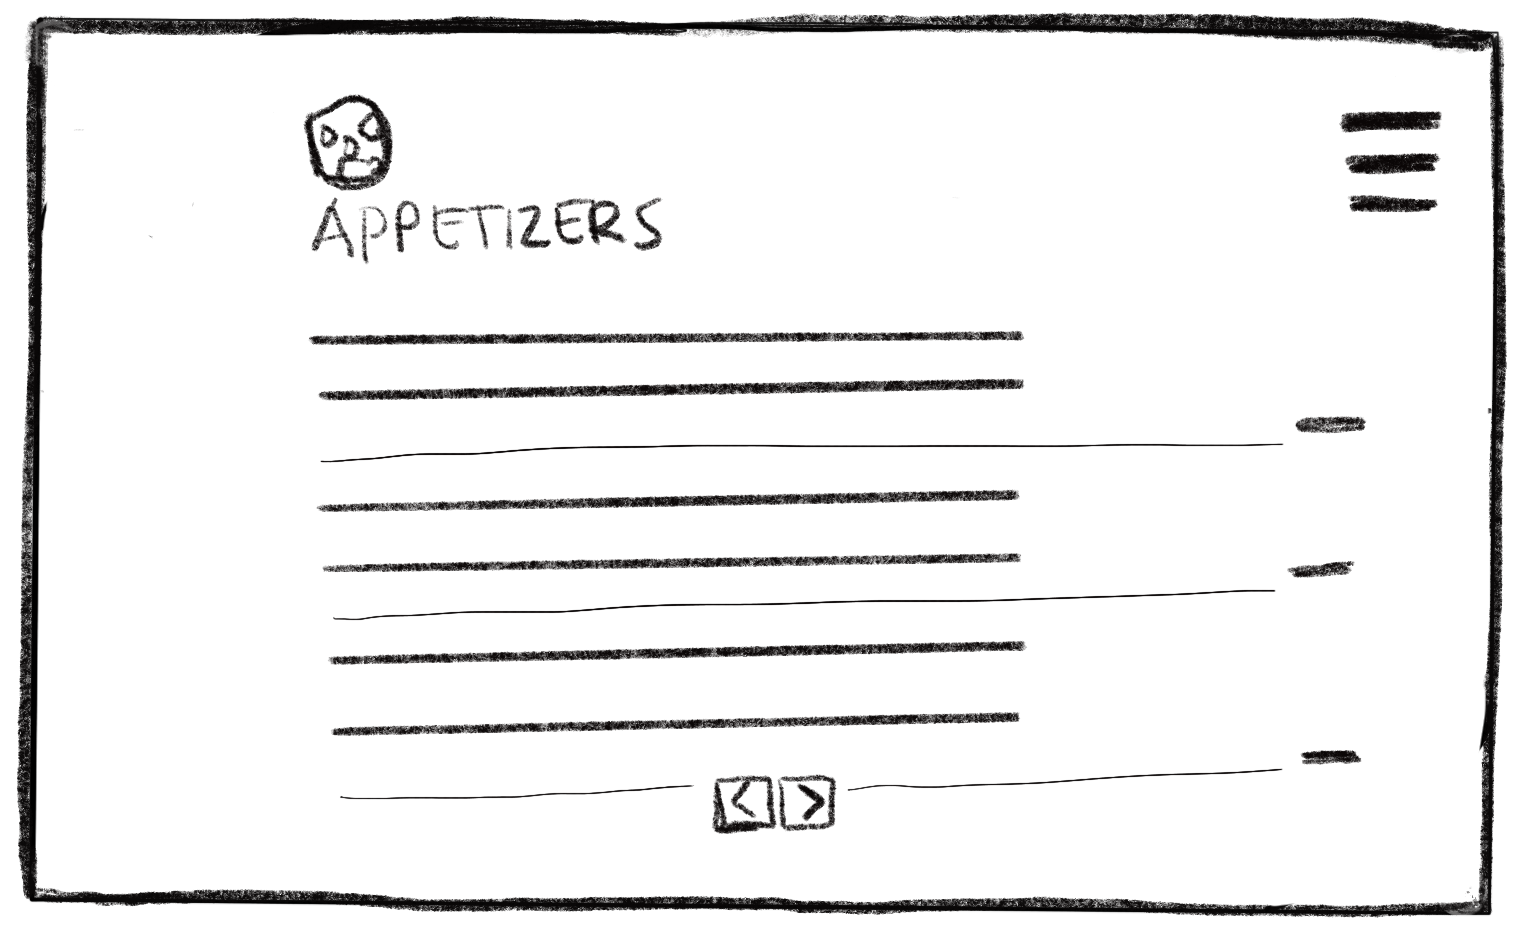 APPETIZERS
< >